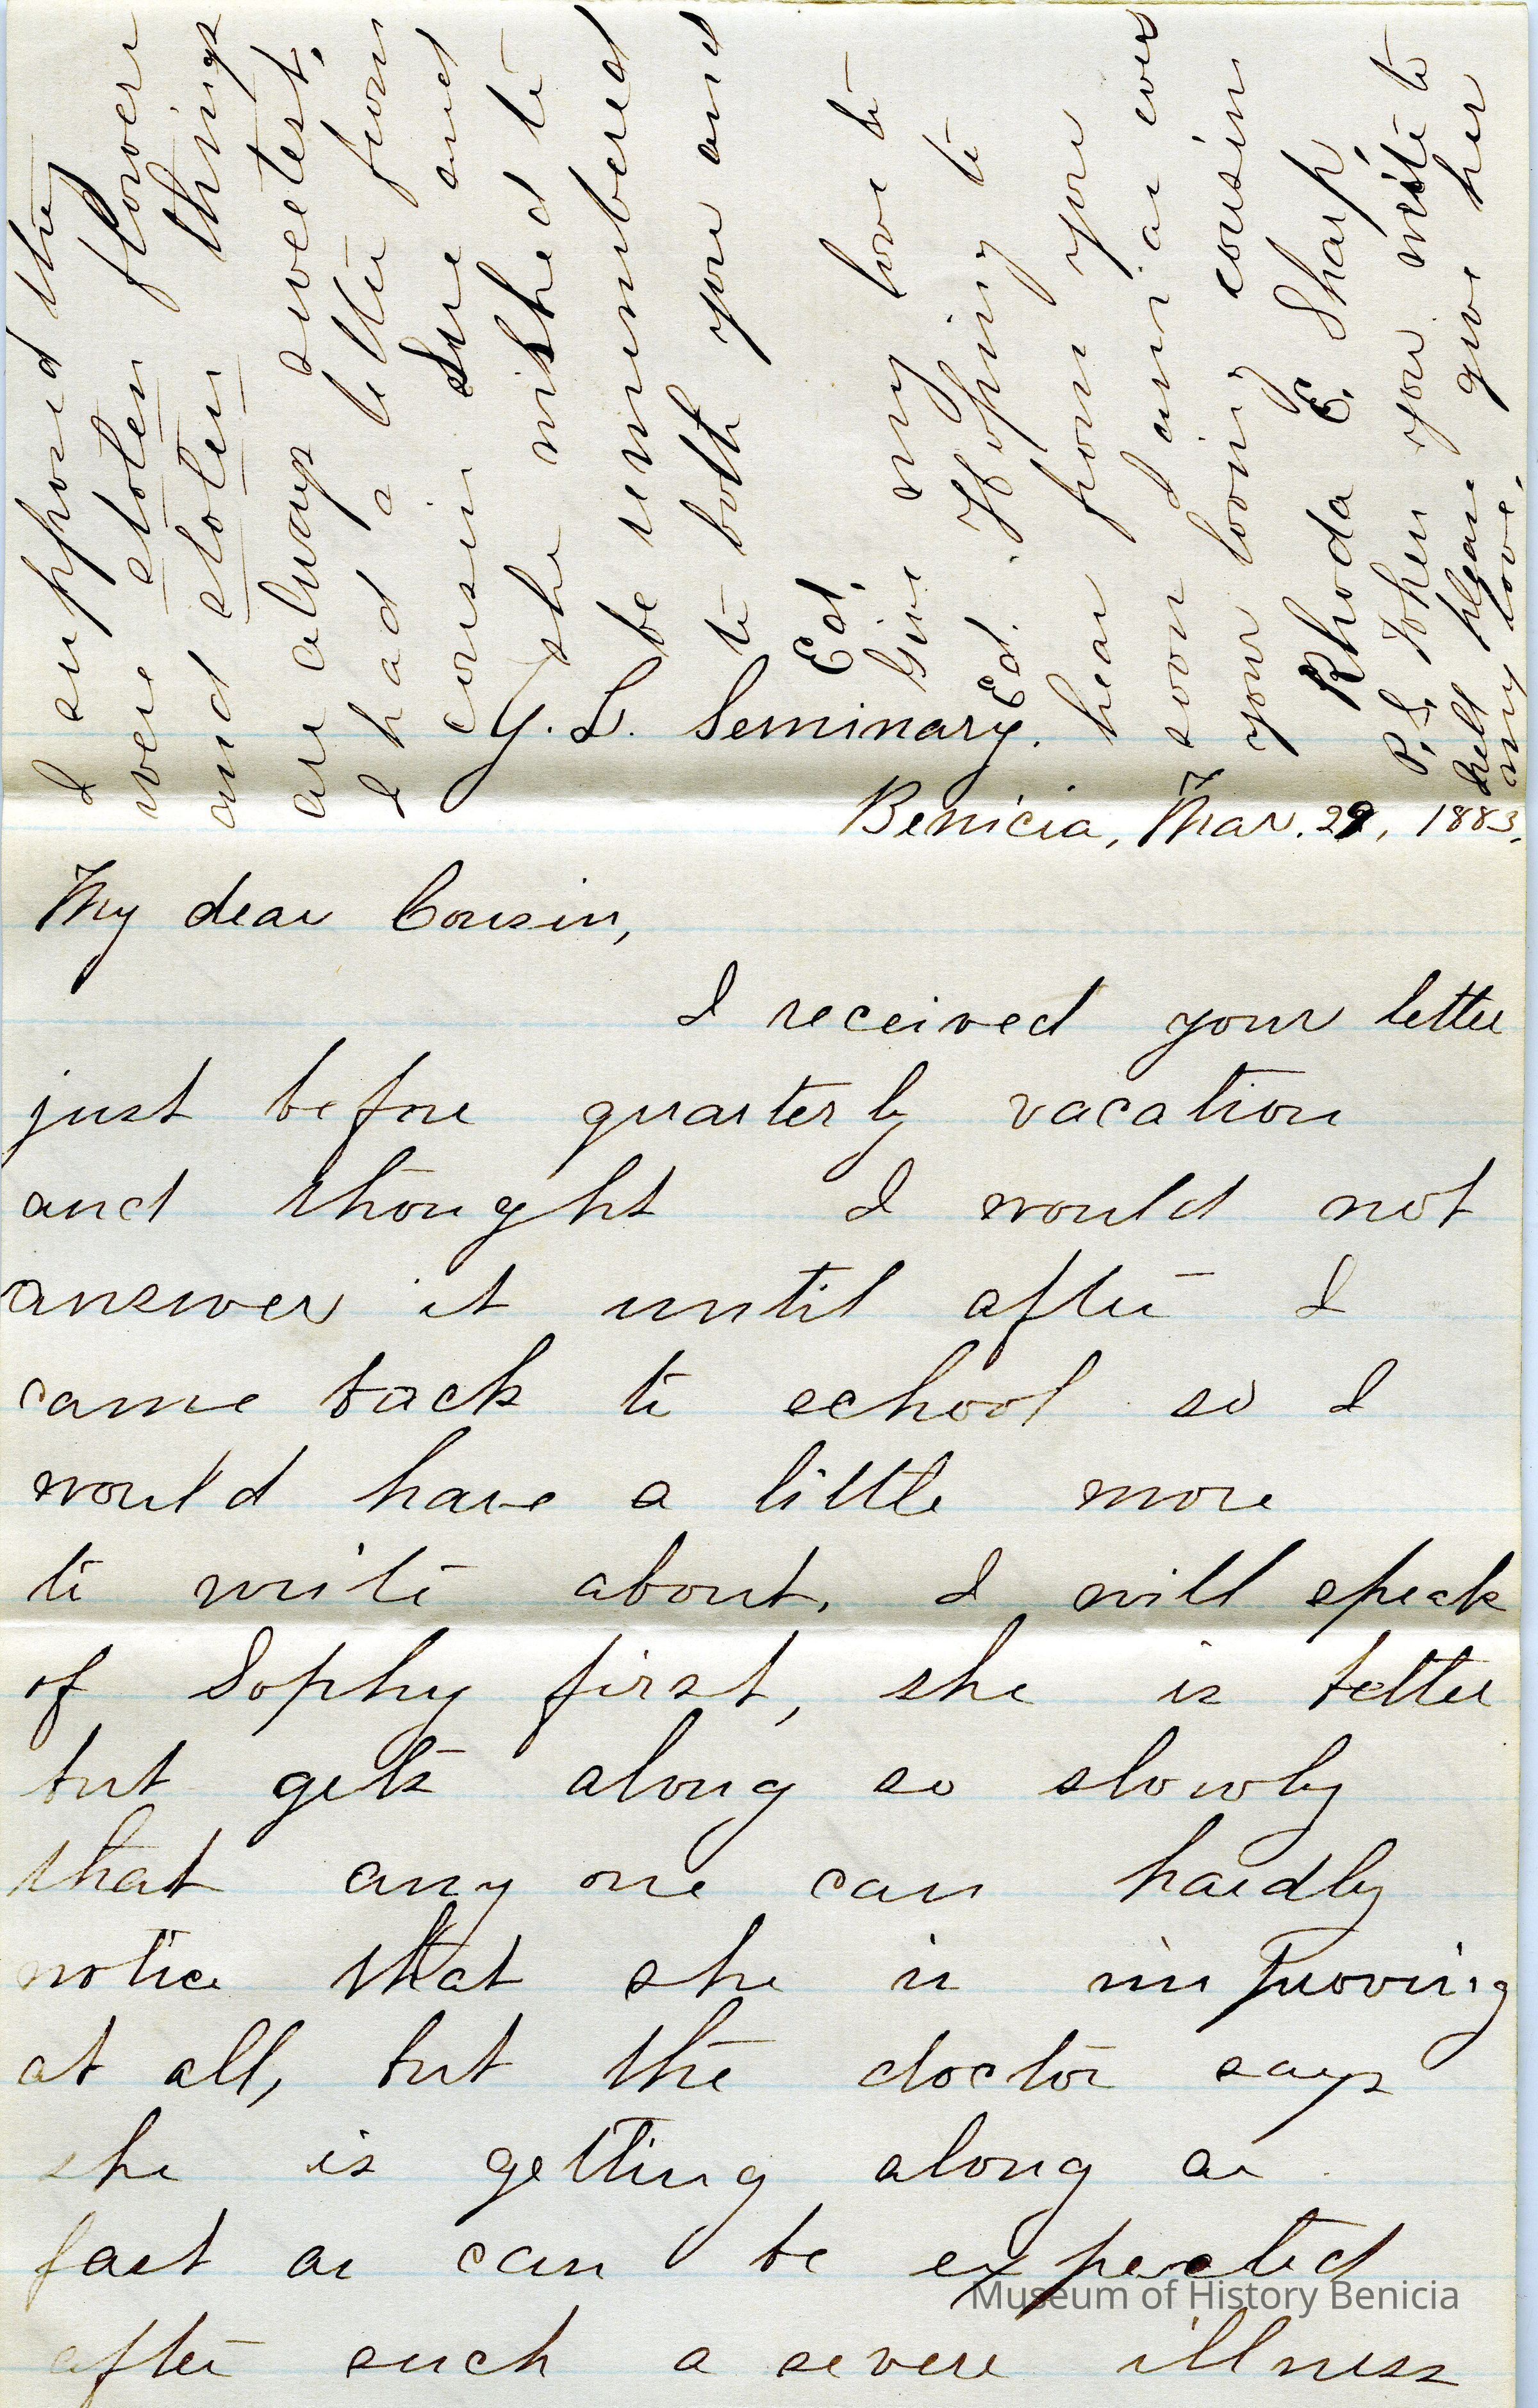 Y. L. Seminary.
Benicia, Mar. 29, 1883.
My dear Cousin,
I received your letter
just before quarterly vacation
and thought I would not
answer it until after I
came back to school so I
would have a little more
to write about. I will speak
of Sophy first, she is better
but gets along so slowly
that any one can hardly
notice that she is improving
at all, but the doctor says
she is getting along as
fast as can be expected
after such a severe illness
I suppose the
were stolen flowers
and stolen things
are always sweetest.
I had a letter from
cousin Sue and
she wished to
be remembered
to both you and
Ed.
Give my love to
Ed. Hoping to
hear from you
soon I am as ever
your loving cousin
Rhoda E. Sharp.
P.S. When you write to
Nell please give her
my love.
Museum of History Benicia